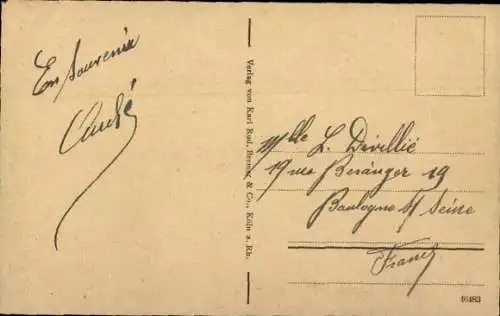 En souvenir
André
Verlag von Karl Rud. Bremer & Co., Köln a. Rh.
Mlle L. Dévillié
19 rue Béranger 19
Boulogne s/ Seine
France